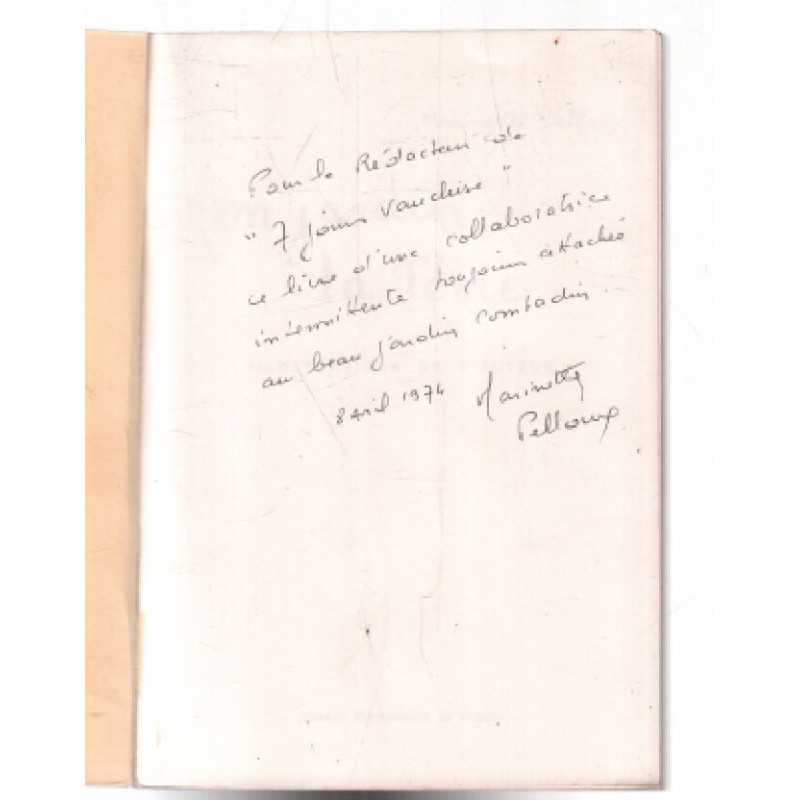 Pour le Rédacteur de
" 7 jours Vaucluse "
ce livre d'une collaboratrice
intermittente toujours attachée
au beau jardin comtadin.
8 Avril 1974 Marinette
Pelloux